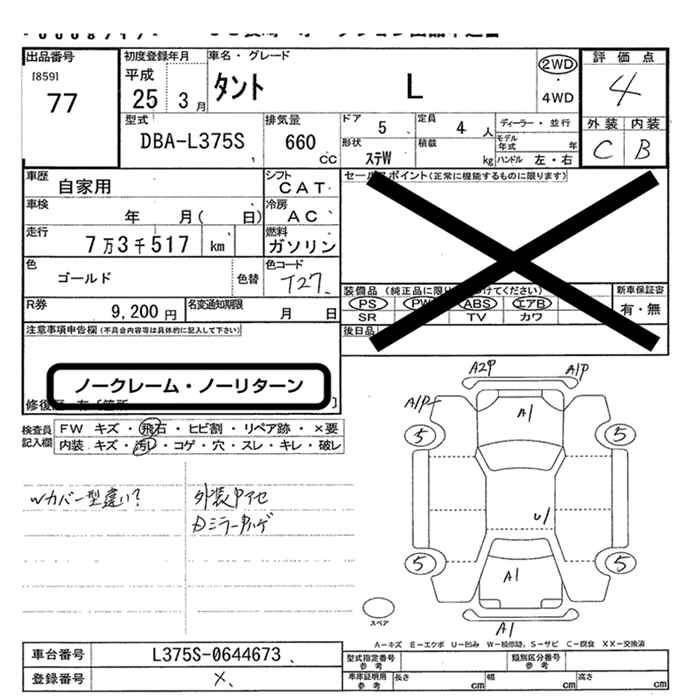 出品番号
[859]
77
初度登録年月
平成
25 3月
車名・グレード
タント L
2WD
・
4WD
評価点
4
外装 内装
C B
型式
DBA-L375S
排気量
660
cc
ドア
5
定員
4 人
ディーラー・並行
モデル
年式 年
形状
ステW
積載
kg
ハンドル 左・右
車歴
自家用
シフト
CAT
セールスポイント(正常に機能するものに限ります)
車検
年 月( 日)
冷房
AC
走行
7万3千517 km
燃料
ガソリン
色
ゴールド
色替
色コード
T27
装備品(純正品に限り○をつけてください)
PS PW ABS エアB
SR TV カワ
新車保証書
有・無
R券
9,200円
名変通知期限
月 日
後日品
注意事項申告欄(不具合内容等は具体的に記入して下さい)
ノークレーム・ノーリターン
検査員
記入欄
FW キズ・飛石・ヒビ割・リペア跡・×要
内装 キズ・汚レ・コゲ・穴・スレ・キレ・破レ
Wカバー型違い?
外装中アセ
Dミラー中ハゲ
A2P
A1P
A1P
A1
5
5
U1
5
5
A1
A1
スペア
A-キズ E-エクボ U-凹み W-補修跡, S-サビ C-腐食 XX-交換済
車台番号
L375S-0644673
登録番号
×
型式指定番号
参考
類別区分番号
参考
車庫証明用
参考
長さ cm
幅 cm
高さ cm